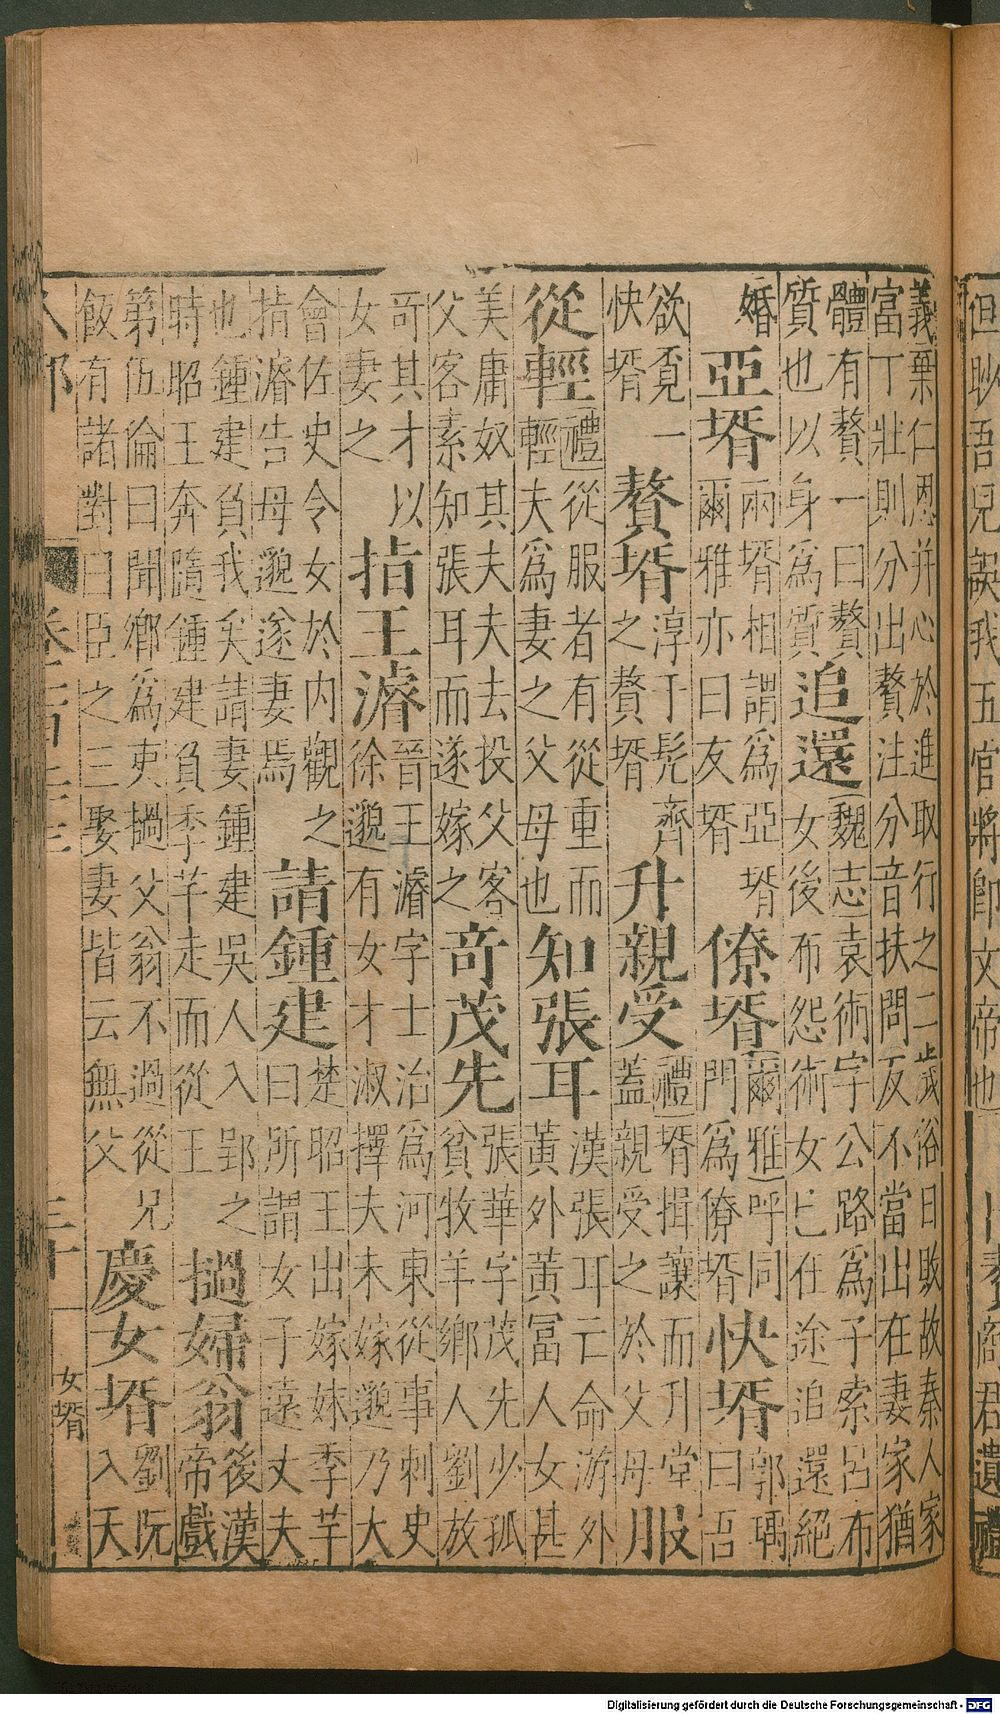 但眇吾兒誤我五官將即文帝也
義棄仁恩并心於進取行之二歲俗日敗故秦人家
富丁壯則分出贅注分音扶問反不當出在妻家猶
體有贅一曰贅
質也以身為質
追還
魏志袁術字公路為子索呂布
女後布怨術女已在途追還絕
婚
亞壻
兩壻相謂為亞壻
爾雅亦曰友壻
僚壻
爾雅呼同
門為僚壻
快壻
郭瑀
曰吾
欲覓一
快壻
贅壻
淳于髡齊
之贅壻
升親受
禮壻揖讓而升堂
蓋親受之於父母
服
從輕
禮從服者有從重而
輕輕夫為妻之父母也
知張耳
漢張耳亡命游外
黃外黃冨人女甚
美庸奴其夫夫去投父客
父客素知張耳而遂嫁之
奇茂先
張華字茂先少孤
貧牧羊鄉人劉放
奇其才以
女妻之
指王濬
晉王濬字士治為河東從事刺史
徐邈有女才淑擇夫未嫁邈乃大
會佐史令女於内觀之
指濬告母邈遂妻焉
請鍾建
楚昭王出嫁妹季芊
曰所謂女子遠丈夫
也鍾建負我矣請妻鍾建吳人入郢之
時昭王奔隨鍾建負季芊走而從王
撾婦翁
後漢
帝戲
第伍倫曰聞鄉為吏撾父翁不過從兄
飯有諸對曰臣之三娶妻皆云無父
慶女壻
劉阮
入天
三十
女壻
Digitalisierung gefördert durch die Deutsche Forschungsgemeinschaft - DFG